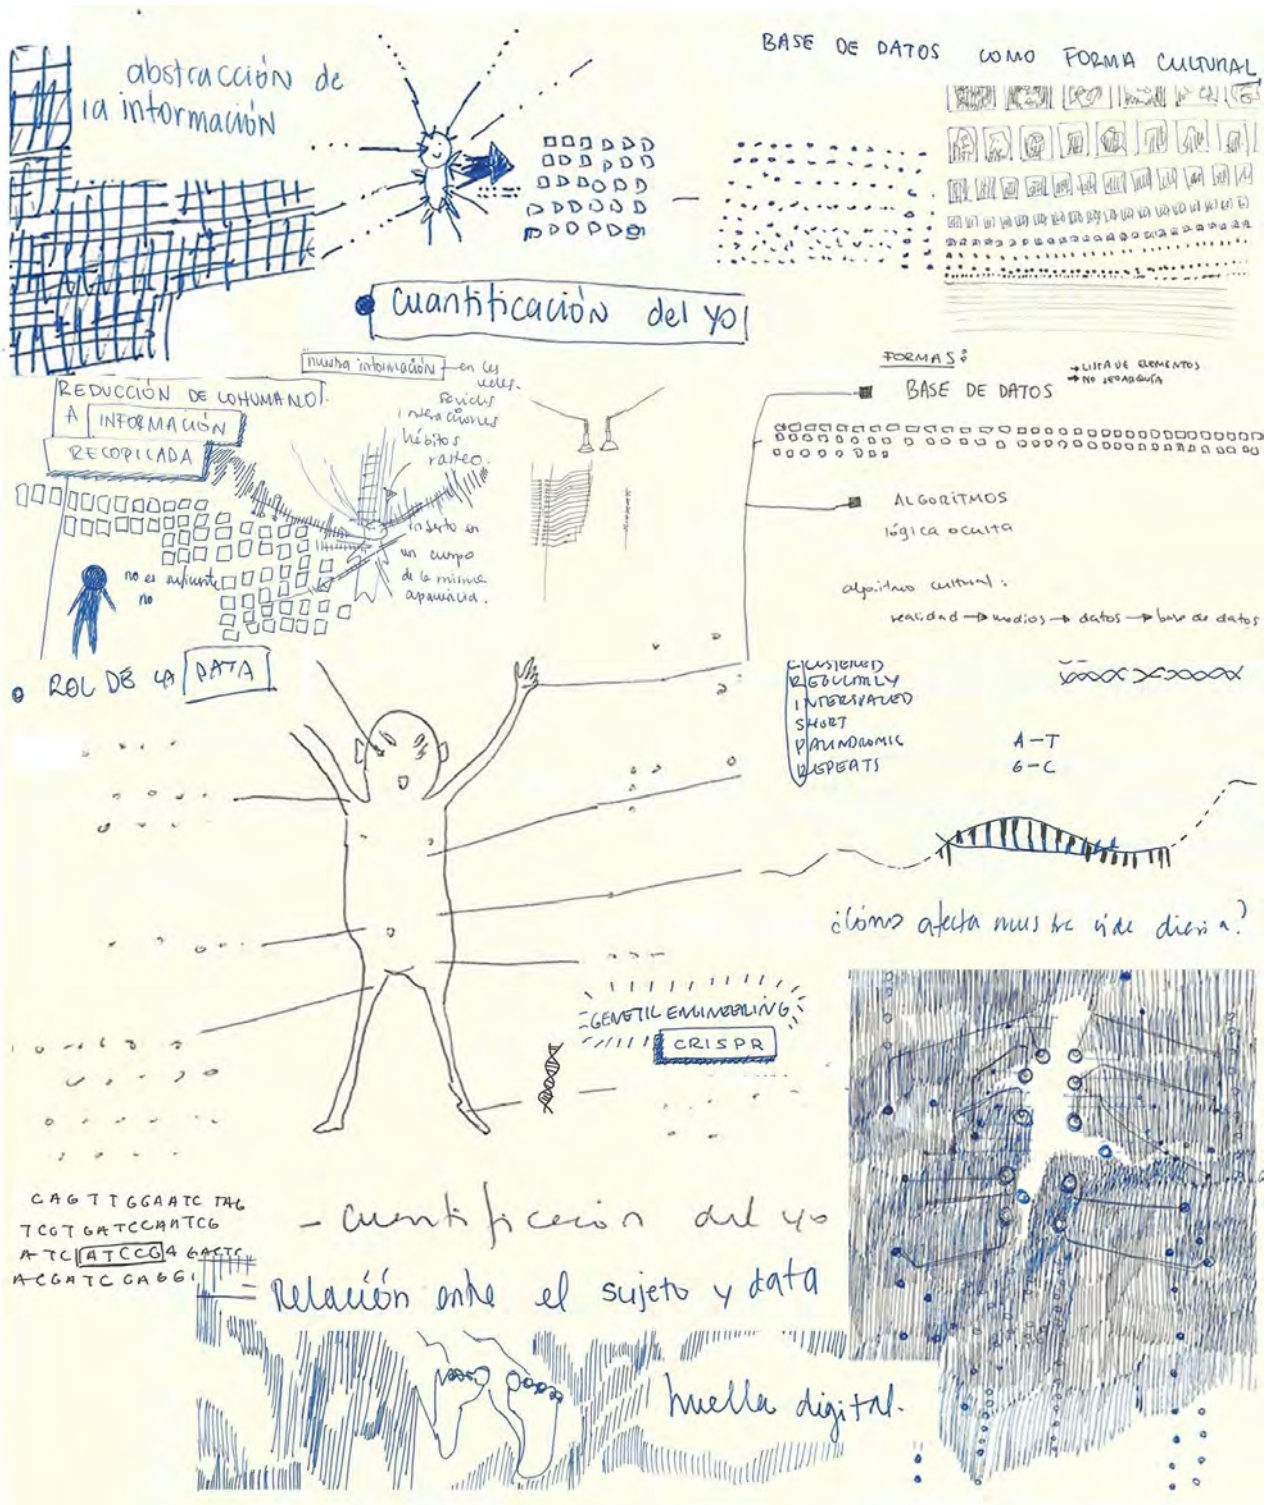 abstracción de
la información
BASE DE DATOS COMO FORMA CULTURAL
cuantificación del yo
nuestra información en las
redes.
sociales
interacciones
hábitos
rastreo.
inserto en
un cuerpo
de la misma
apariencia.
REDUCCIÓN DE LO HUMANO
A INFORMACIÓN
RECOPILADA
no es suficiente
no
FORMAS:
BASE DE DATOS
→ LISTA DE ELEMENTOS
→ NO JERARQUÍA
ALGORITMOS
lógica oculta
algoritmo cultural:
realidad → medios → datos → base de datos
ROL DE LA DATA
CLUSTERED
REGULARLY
INTERSPACED
SHORT
PALINDROMIC
REPEATS
A-T
G-C
¿Cómo afecta nuestra vida diaria?
GENETIC ENGINEERING
CRISPR
CAGTTGGAATC TAG
TCGTGATCCAATCG
ATC ATCCG A GACTC
ACGATC GAGG
- cuantificación del yo
Relación entre el sujeto y data
huella digital.